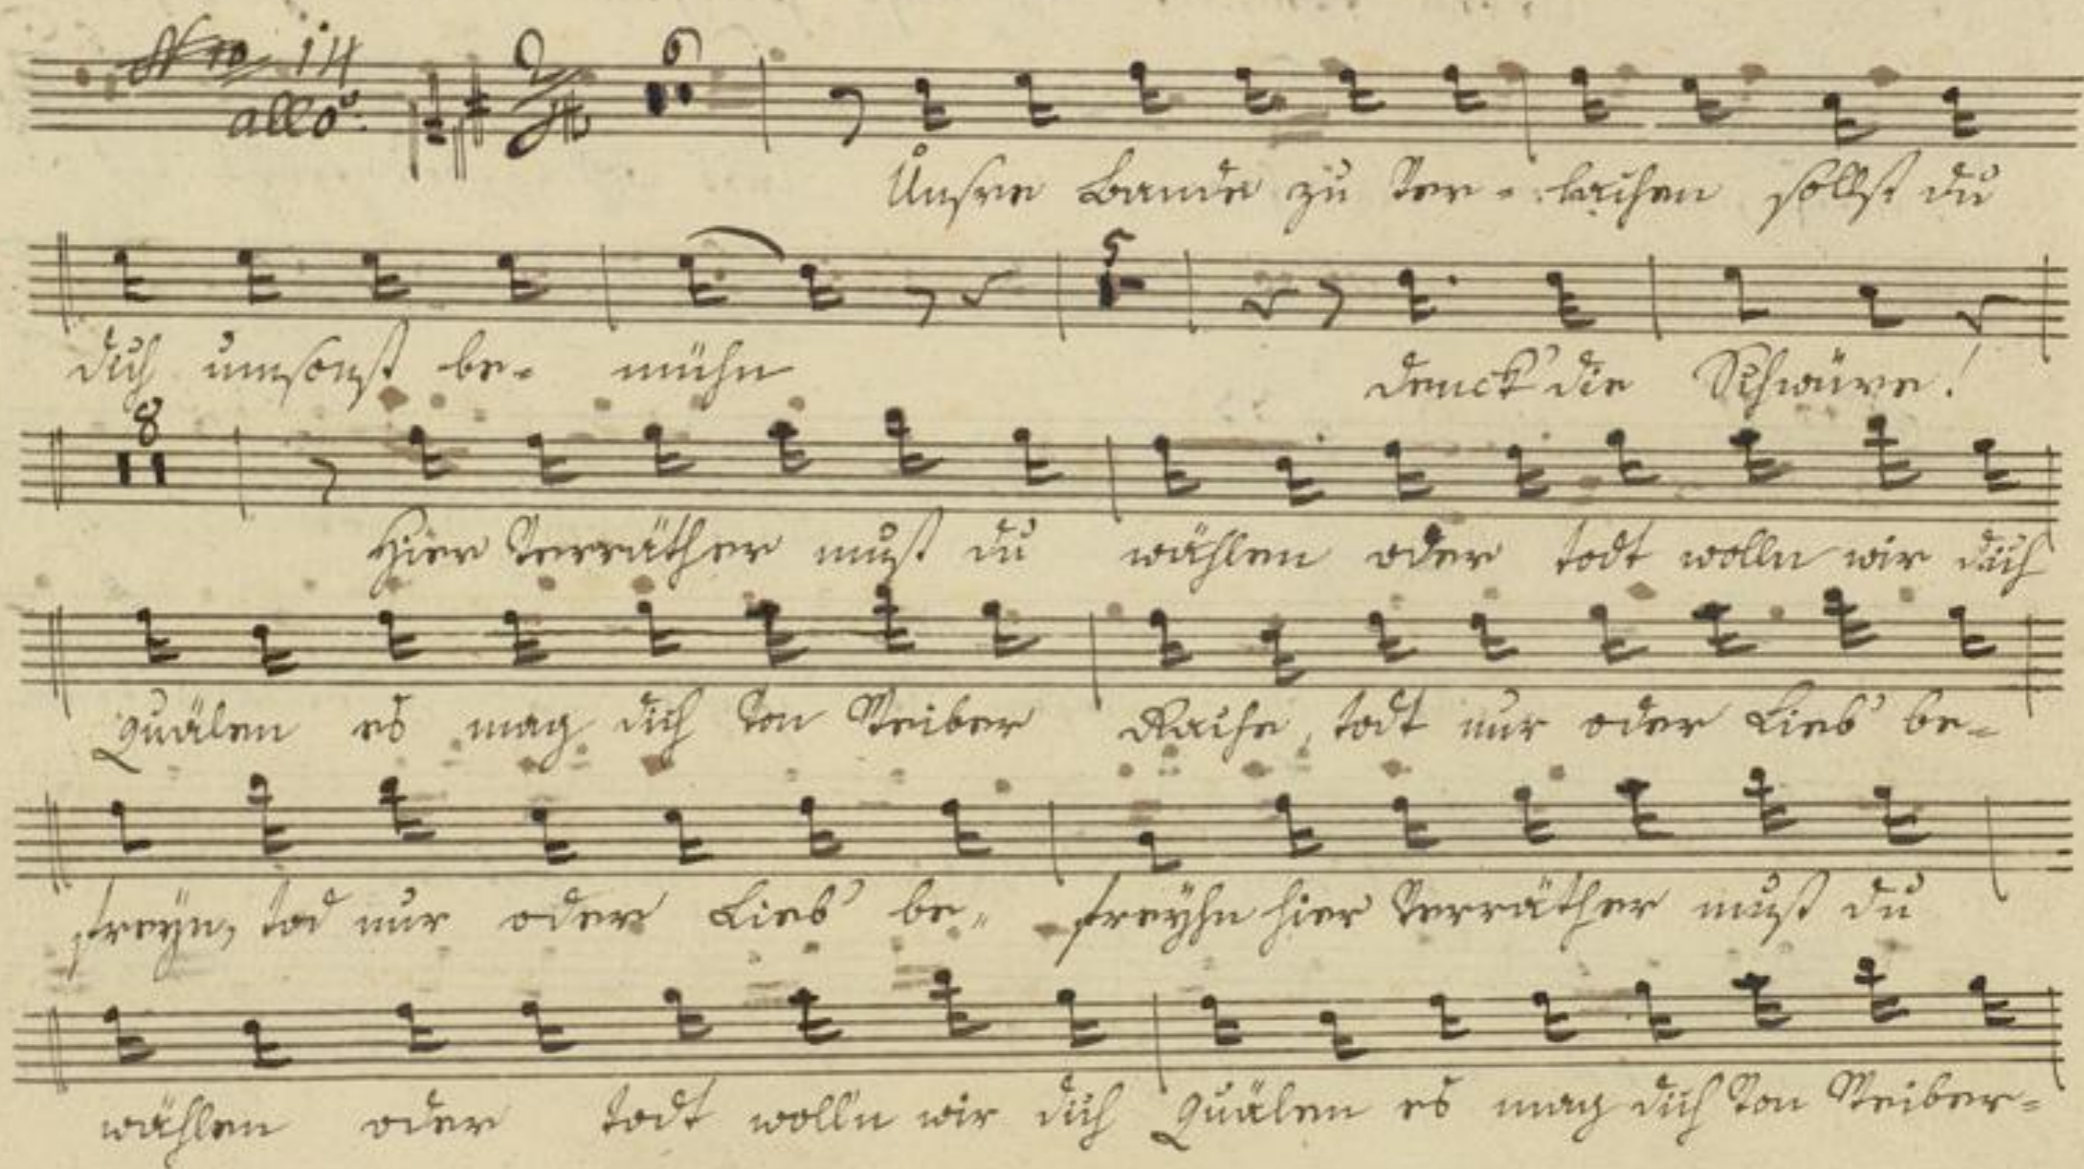 Nro 14
allo:
6
Unsre Bande zu ver - lachen sollst du
5
dich umsonst be- mühn denck' die Schwüre!
8
Hier Verräther must du wählen oder todt wolln wir dich
quälen es mag dich von Weiber Rache, todt nur oder Lieb' be-
freyn, tod nur oder Lieb' be- freyhn hier Verräther must du
wählen oder todt wolln wir dich quälen es mag dich von Weiber-